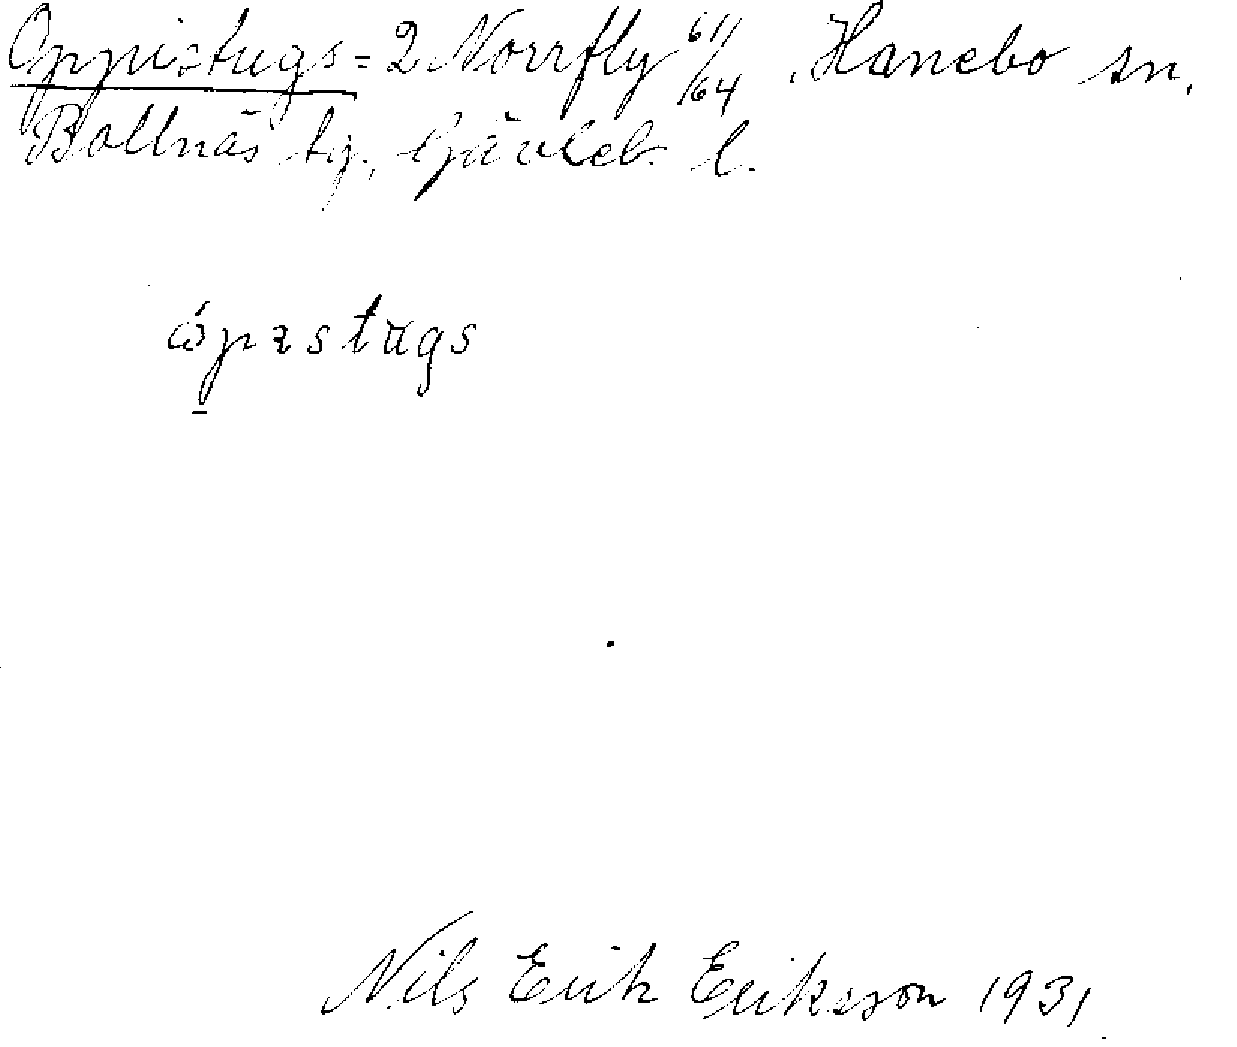 Oppistugs = 2 Norrfly 611/64 Hanebo sn,
Bollnäs tg., Gävleb. l.
ópıstugs
Nils Erik Eriksson 1931